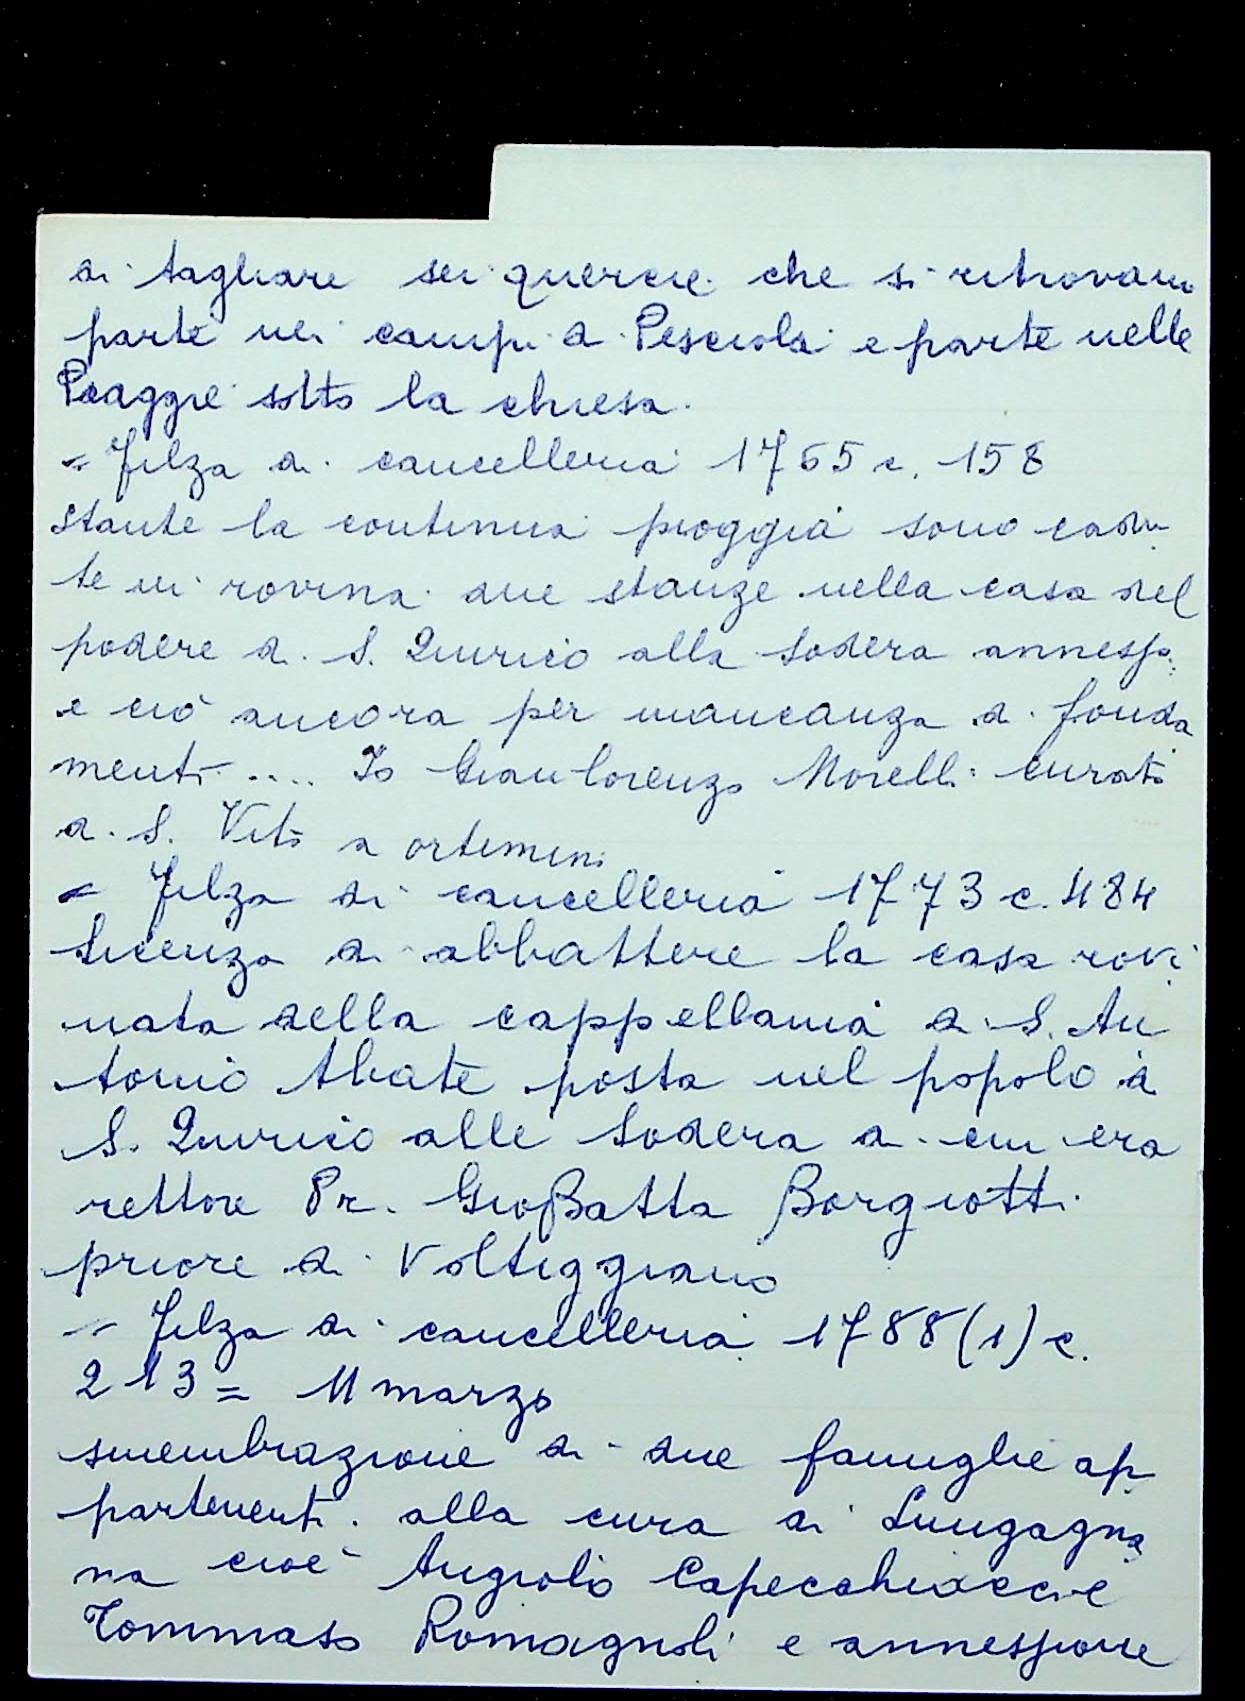 di tagliare sei quercie che si ritrovano
parte nei campi di Pesciola e parte nelle
Piaggie sotto la chiesa.
= Filza di cancelleria 1765 c. 158
stante la continua pioggia sono cadu-
te in rovina due stanze nella casa del
podere di S. Quirico alla Sodera annesso
e ciò ancora per mancanza di fonda
menti .... Io Gian Lorenzo Morelli curato
di S. Vito a ortimini
= Filza di cancelleria 1773 c. 484
licenza di abbattere la casa rovi
nata della cappellania di S. An
tonio Abate posta nel popolo di
S. Quirico alle Sodera di cui era
rettore Pr. GioBatta Borgiotti
priore di Voltiggiano
= Filza di cancelleria 1788 (1) c.
213 = 11 marzo
smembrazione di due famiglie ap
partenenti alla cura di Lungagna
na cioè Angiolo Capecchiacci e
Tommaso Romagnoli e annessione